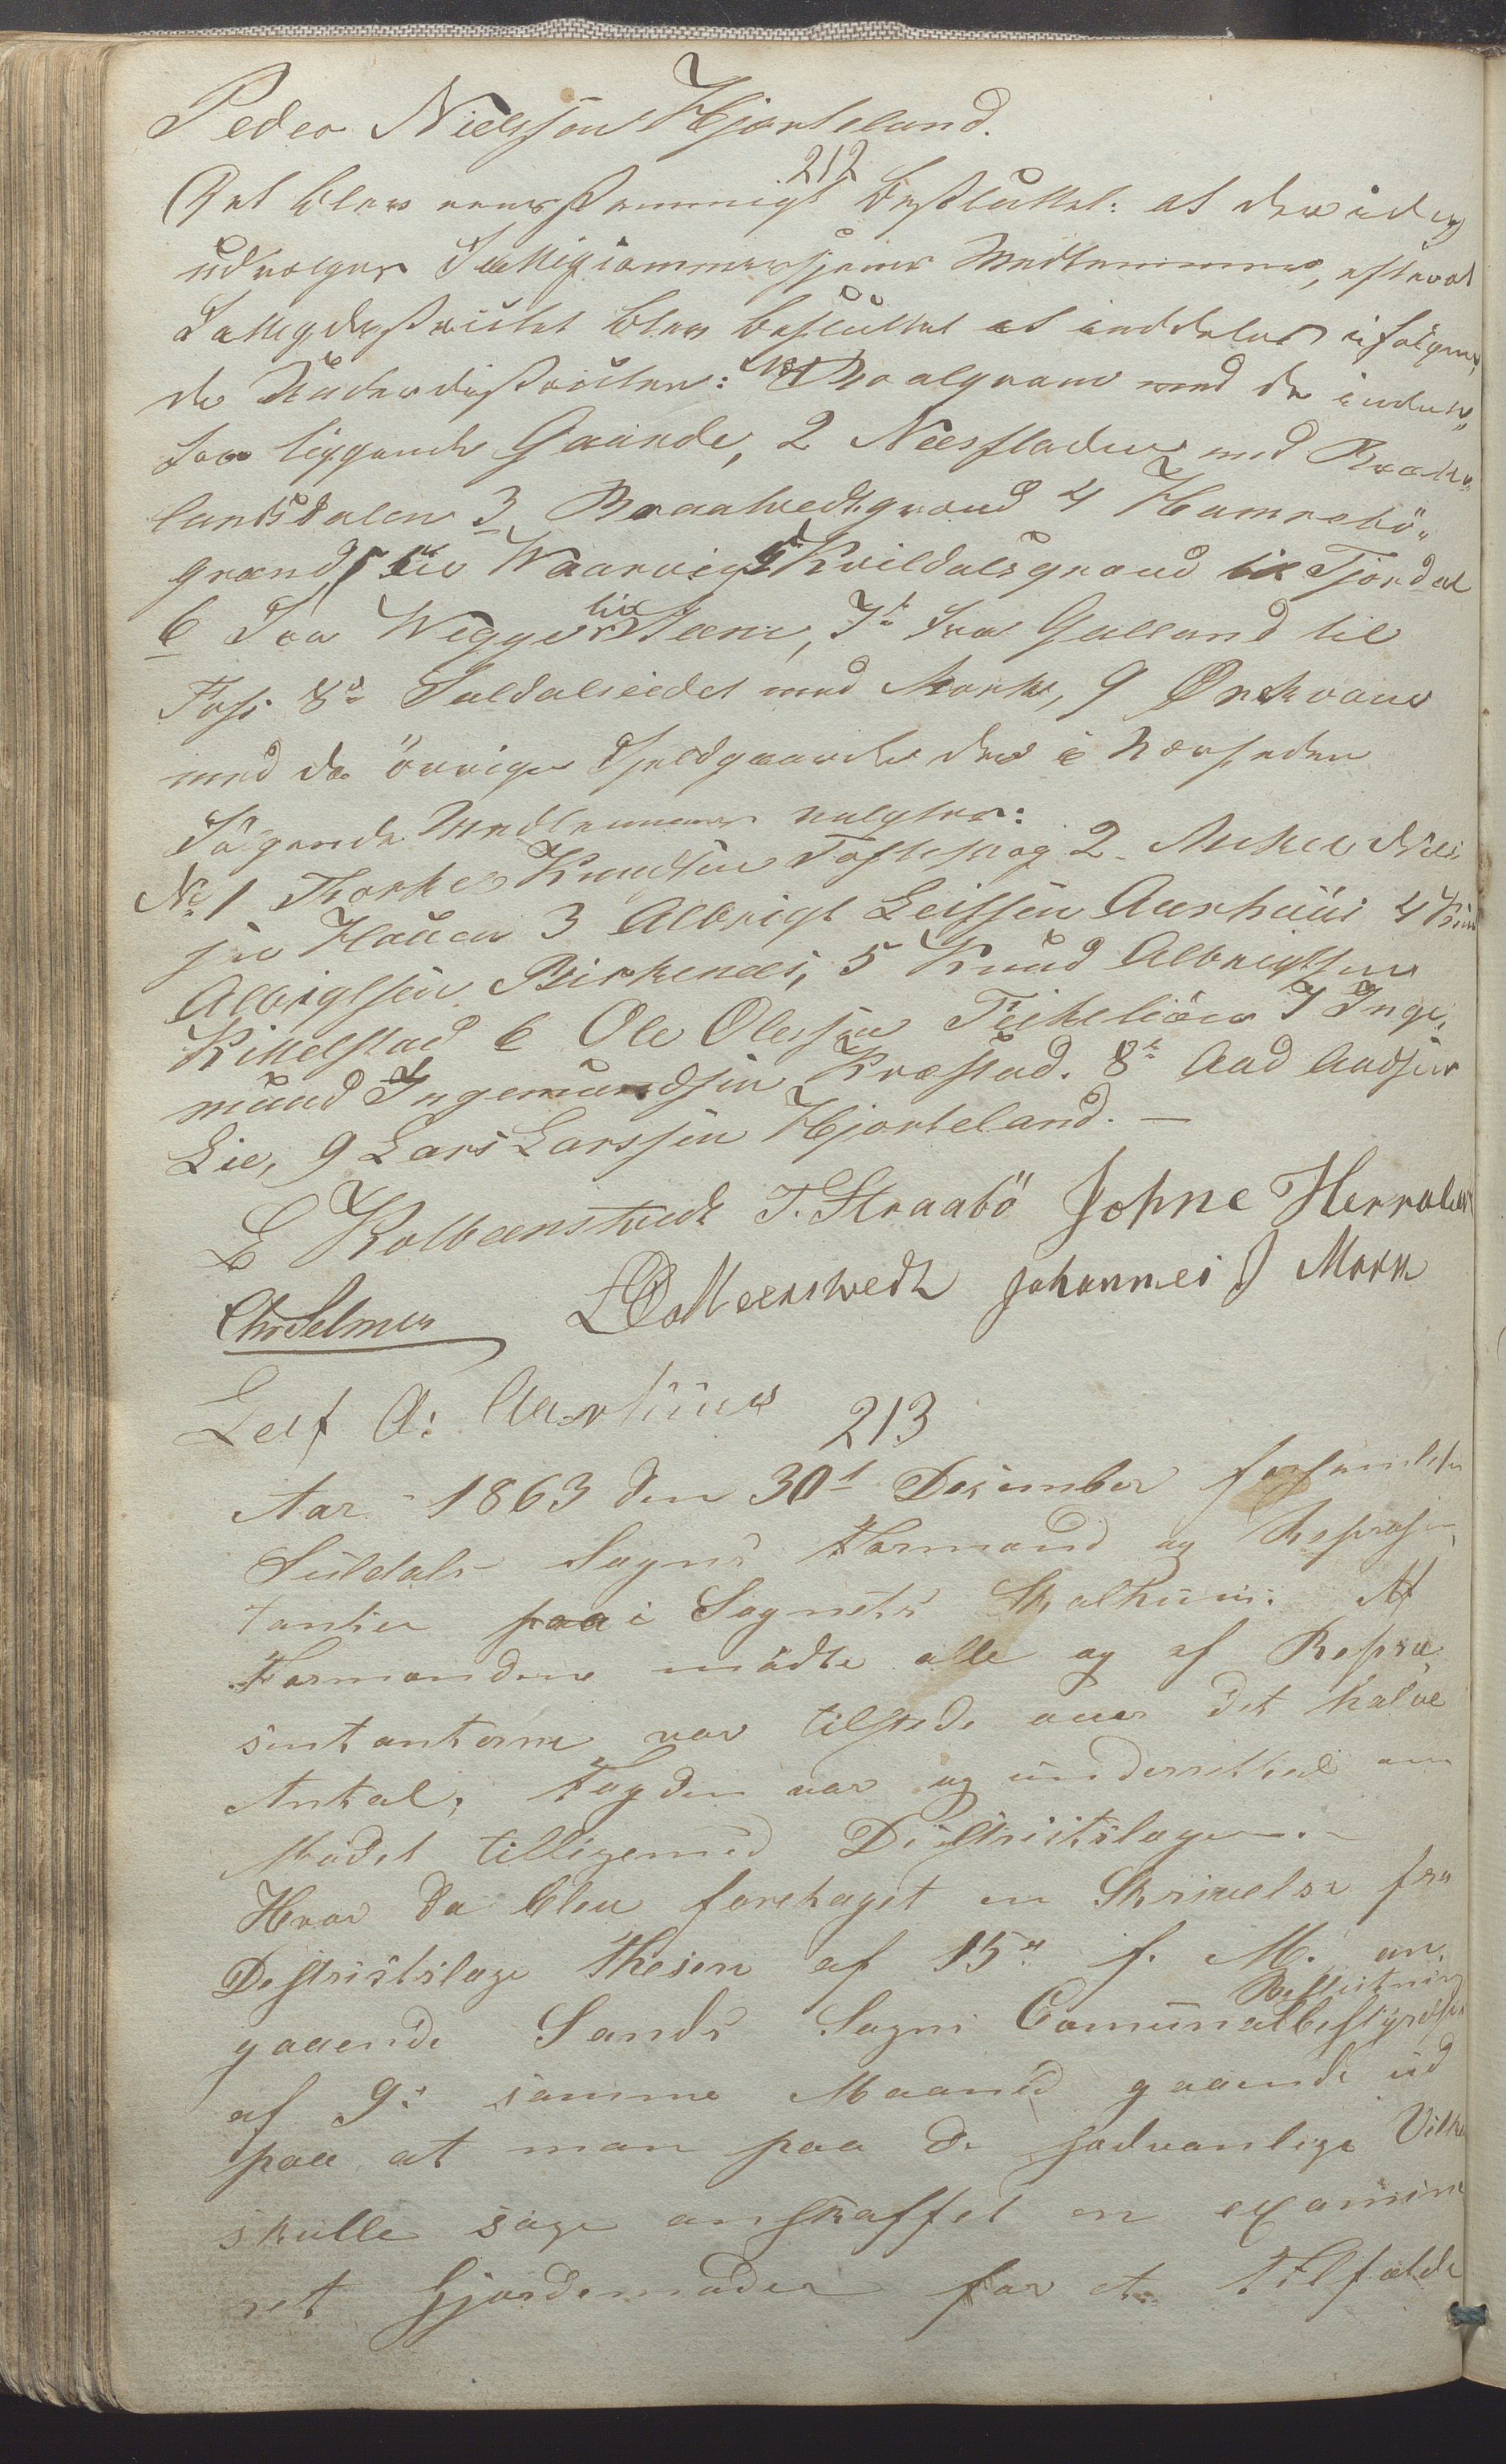 Peder Nielssøn Hjorteland.
212
Det blev eenstemmigt besluttet: at der idag
udvælges Fattigcommissjones Medlemmer, efterat
Fattigdistriktet blev besluttet at inddeles i følgen„
de Underdistrikter: No 1 Roalgrænd med de inden„
for liggende Gaarde, 2 Næsfladen med Bratt„
landsdalen 3 Braatvedtgrænd 4 Hamrebö„
grænd til Waarvig 5 Kvildalsgrænd til Tjordal
6 Fra Wegge til Steene, 7de fra Gulland til
Foss 8de Suldaleidet med Mork, 9 Ørekvam
med de övrige Fjeldgaarde der i Nærheden
Fölgende Medlemmer valgtes:
No 1 Thorkel Knudsen Tofteskog 2.
sen 3 Albrigt Leifsen Aarhuus 4
Albrigtsen Birkenæs, 5 Knud Albrigtsen
Kittelstad 6 Ole Olessen 7 Inge„
mund Ingemundsen Kvæstad. 8de Aad Aadsen
Lie, 9 Lars Larssen Hjorteland. —
L Kolbeenstvedt T. Straabö Johne Herrald
Chr Selmer L Kolbeenstvedt Johannes J Mork
Leif A: Aarhuus
213
Aar 1863 den 30te Desember forsamledes
Suldals Sogns Formænd og Repræsen
tanter paa i Sognets Skolhuus. Af
Formændene mødte alle og af Repræ
sentanterne var tilstede over det halve
Antal, Fogden var og underrettet om
Mødet tilligemed Distriktslægen. —
Hvor da blev foretaget en Skrivelse fra
Destriktslæge Thesen af 15de f. M. an„
gaaende Sands Sogns Comunalbestyrelses Beslutning
af 9de samme Maaned gaaende ud
paa at man paa de sædvanlige Vilkaar
skulle søge anskaffet en examine
ret Gjordemoder for et Tilfælde